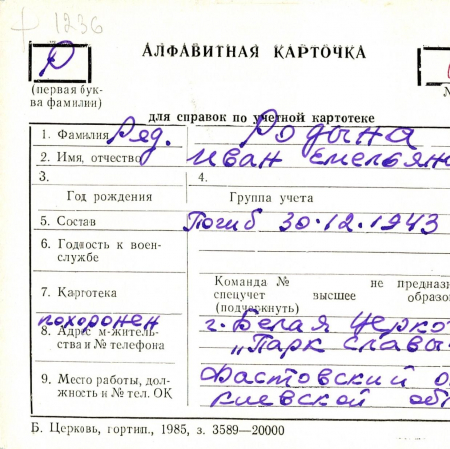 1236
Р
АЛФАВИТНАЯ КАРТОЧКА
(первая бук-
ва фамилии)
для справок по учетной картотеке
1. Фамилия Ряд. Родына
2. Имя, отчество Иван Емельян
3.
4.
Год рождения
Группа учета
5. Состав Погиб 30.12.1943
6. Годность к воен-
службе
Команда № не предназн
7. Картотека спецучет высшее образо
(подчеркнуть)
похоронен г. Белая Церко
8. Адрес м-житель-
ства и № телефона „Парк славы
9. Место работы, дол-
жность и № тел. ОК
Фастовский
Киевской об
Б. Церковь, гортип., 1985, з. 3589—20000